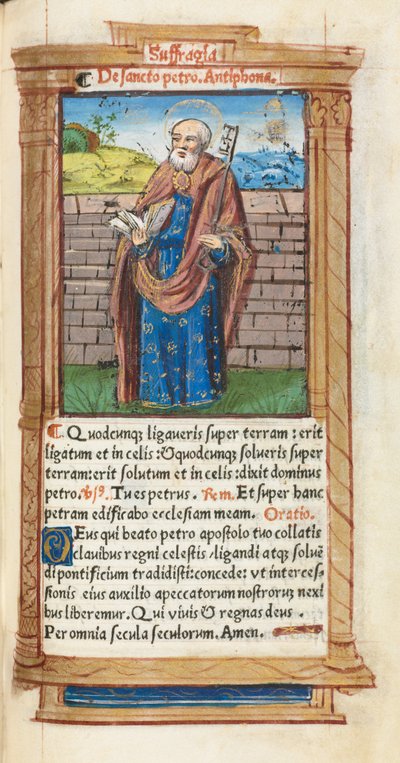 Suffragia
De sancto petro. Antiphona.
Quodcunqꝫ ligaveris super terram : erit
ligatum et in celis : & quodcunque solveris super
terram: erit solutum et in celis : dixit dominus
petro. Vs9. Tu es petrus. Rem. Et super hanc
petram edificabo ecclesiam meam. Oratio.
DEus qui beato petro apostolo tuo collatis
clavibus regni celestis / ligandi atqꝫ solvē
di pontificium tradidisti: concede: vt interces-
sionis eius auxilio a peccatorum nostrorum nexi
bus liberemur. Qui vivis & regnas deus.
Per omnia secula seculorum. Amen.